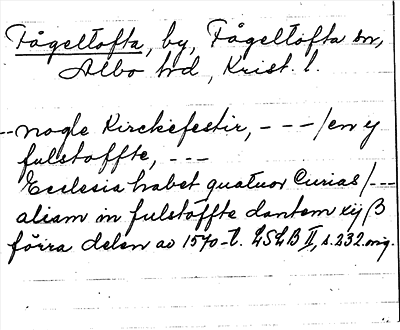 Fågeltofta, by, Fågeltofta sn,
Albo hd, Krist. l.
-- nogle Kirckefestir, - - - / en y
fulstoffte, - - -
Ecclesia habet quatuor Curias / - - -
aliam in fulstoffte dantem xij β
förra delen av 1570-t. LSLB II, s. 232 orig.